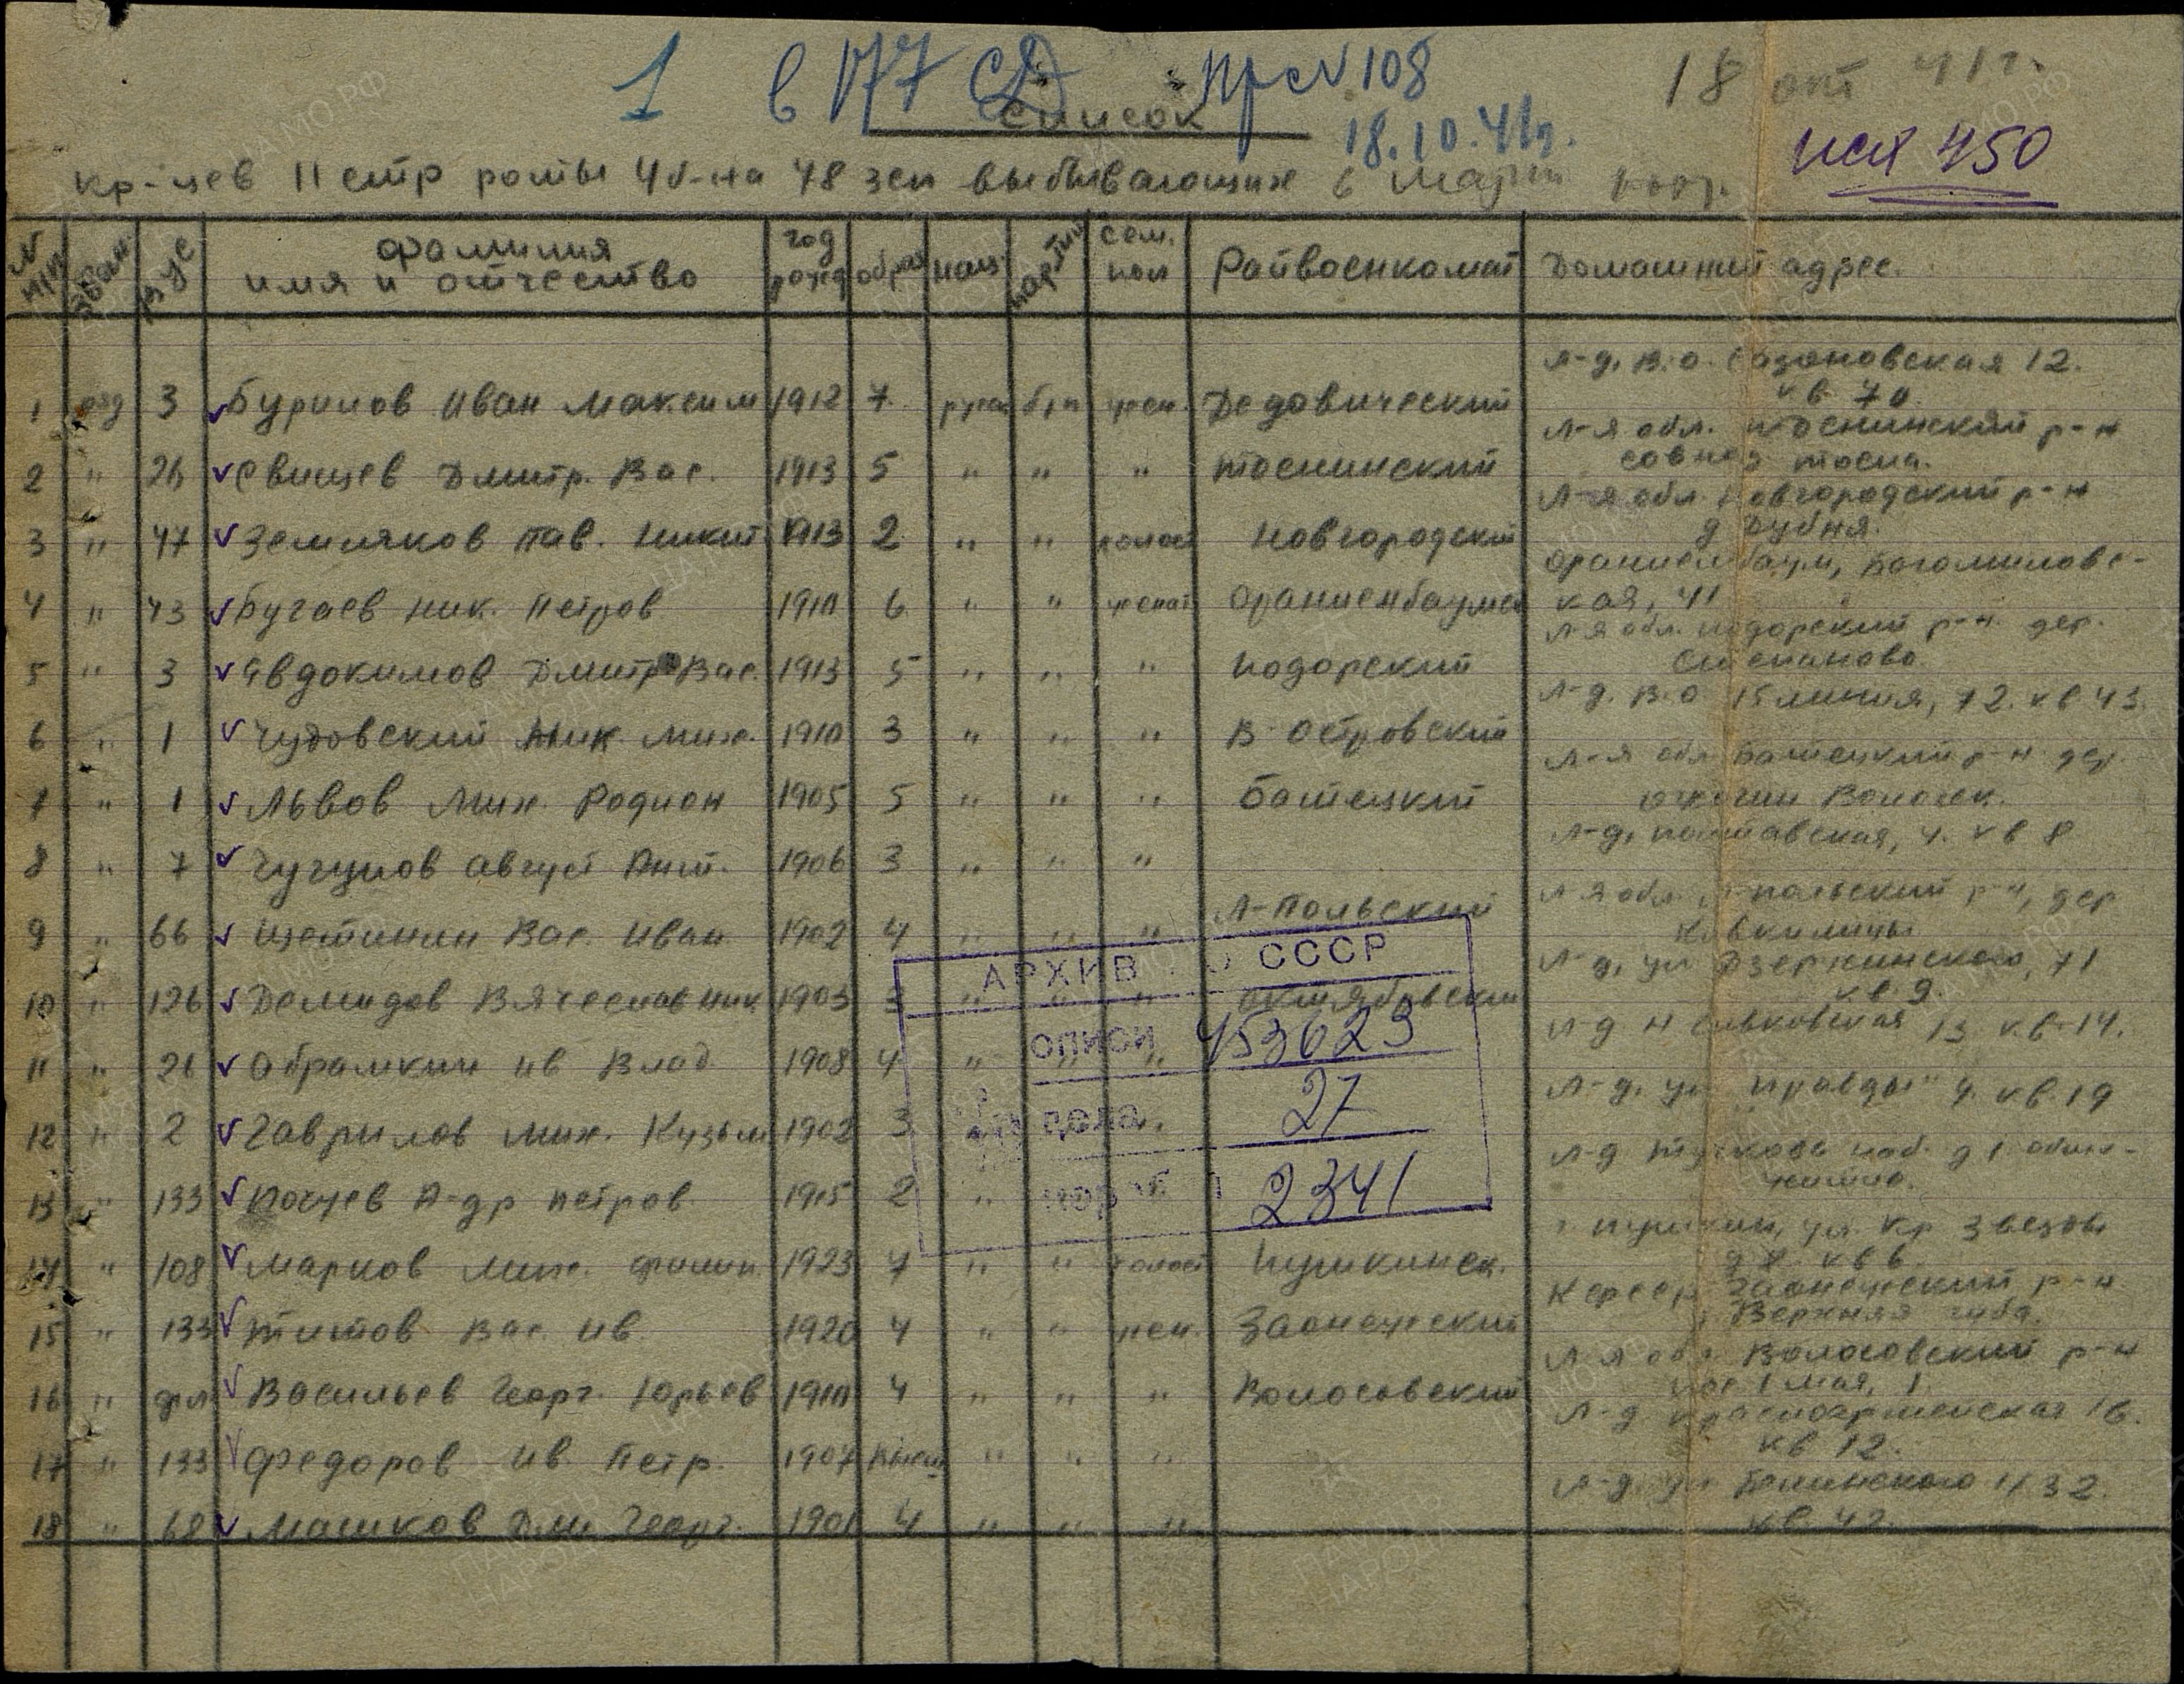 1 в 177 СД пр с №108
18 окт 41г.
Список
18.10.41г.
исх 450
кр-цев 11 стр роты 4 б-на 48 зсп выбывающих в марш
№ п/п
ВУС
фамилия имя и отчество
год рожд
образ
нац.
партий
сем. пол
Райвоенкомат
Домашний адрес.
л-д. В.О. 12. кв. 70
1 ряд 3 Буринов Иван Максим 1912 7 русс б/п жен. Дедовический
Л-я обл. Тоснинский р-н Тосна.
2 " 26 Свищев Дмитр. Вас. 1913 5 " " " Тоснинский
Л-я обл. Новгородский р-н д Дубня.
3 " 47 Земляков Пав. Никит. 1913 2 " " холост Новгородский
Ораниенбаум, Богомиловс-
4 " 43 Бугаев Ник. Петров 1910 6 " " женат Ораниенбаумск кая, 41
Л-я обл. Подорский р-н. дер.
5 " 3 Явдокимов Дмитр Вас. 1913 5 " " " Подорский Степаново
л-д. В.О 15 линия, 72. кв 43.
6 " 1 Чудовский Ник. Мих. 1910 3 " " " В. Островский
Л-я обл Батецкий р-н дер.
7 " 1 Львов Мих. Родион 1905 5 " " " Батецкий
л-д, Полтавская, 4. кв 8
8 " 7 Чугунов Август Ант. 1906 3 " " "
Л-я обл. польский р-н, дер
9 " 66 Щетинин Вас. Иван 1902 4 " " " Л-Польский
л-д, ул Дзержинского, 71 кв. 9.
10 " 126 Демидов Вячеслав Ник 1903 3 " " " Октябрьский
л-д 13 кв. 14.
11 " 21 Абрамкин Ив Влад 1908 4 " "
л-д. ул "Правды" 4. кв. 19
12 " 2 Гаврилов Мих. Кузьм 1902 3
л-д Тучкова наб. д 1 общ-житие.
13 " 133 Почуев А-др Петров. 1915 2 "
АРХИВ О СССР
ОПИСИ 453623
дела 27
кор 2341
г Пушкин, ул. Кр Звезды д 8. кв 6
14 " 108 Марков Мих. Филип. 1923 7 " " холост Пушкинск.
Кфсср Заонежский р-н Верхняя губа.
15 " 133 Титов Вас. Ив. 1920 4 " " жен. Заонежский
Л-я обл Волосовский р-н пос 1 мая, 1
16 " Васильев Георг. Юрьев 1910 4 " " " Волосовский
л-д Красноармейская 16. кв 12.
17 " 133 Федоров Ив. Петр. 1907 " " "
л-д. ул Белинского 11/32. кв. 42.
18 " 68 Машков Дми Георг. 1901 4 " " "